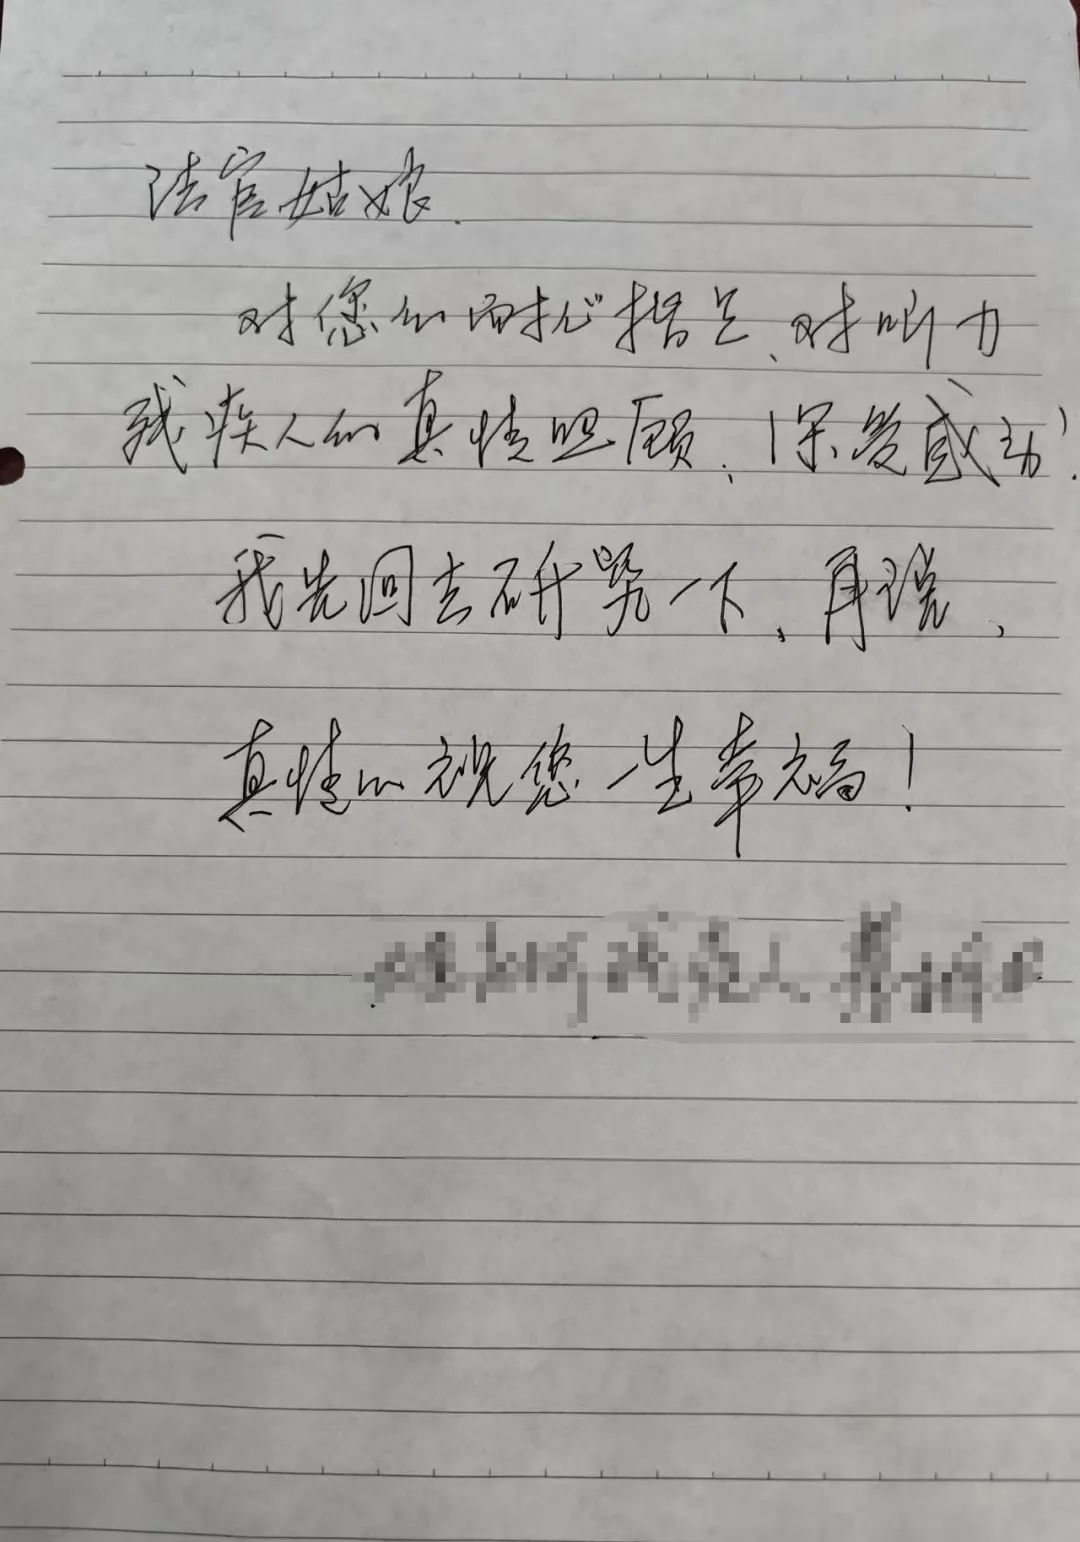 法官姑娘.
对您的耐心指点、对听力
残疾人的真情照顾、深受感动.
我先回去研究一下、再说、
真情的祝您一生幸福!